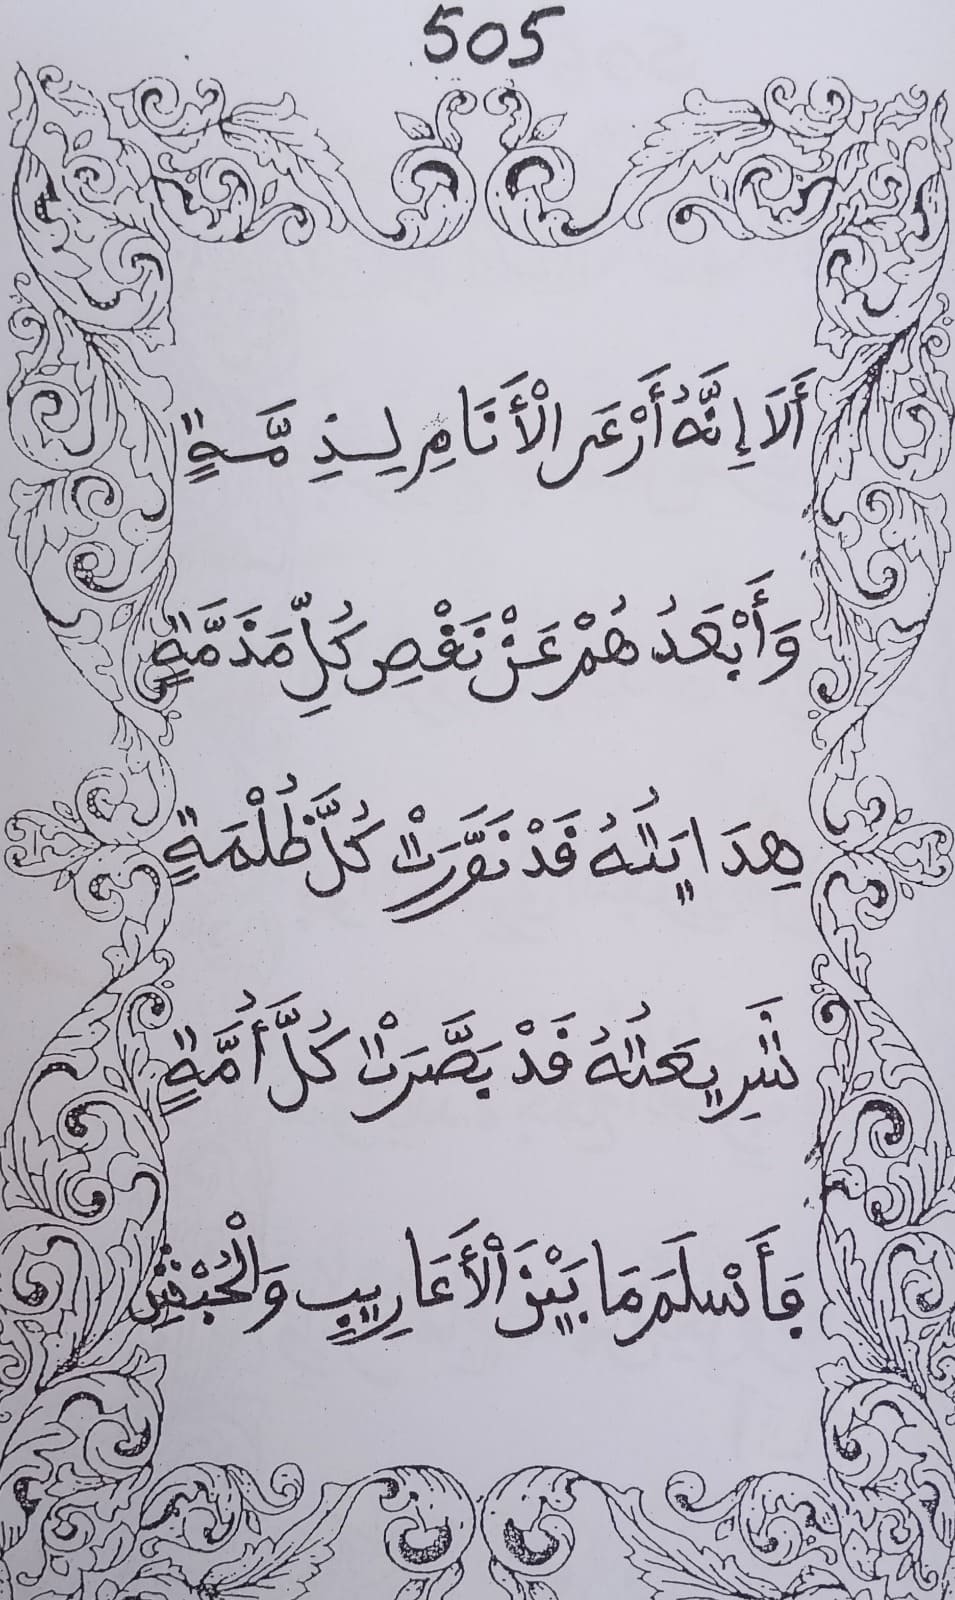 505
أَلَا إِنَّهُ أَرْعَى الْأَنَامِ لِذِمَّةٍ
وَأَبْعَدُهُمْ عَنْ نَقْصِ كُلِّ مَذَمَّةٍ
هِدَايَتُهُ قَدْ نَوَّرَتْ كُلَّ ظُلْمَةٍ
شَرِيعَتُهُ قَدْ بَصَّرَتْ كُلَّ أُمَّةٍ
فَأَسْلَمَ مَا بَيْنَ الْأَعَارِيبِ وَالْحُبْشِ